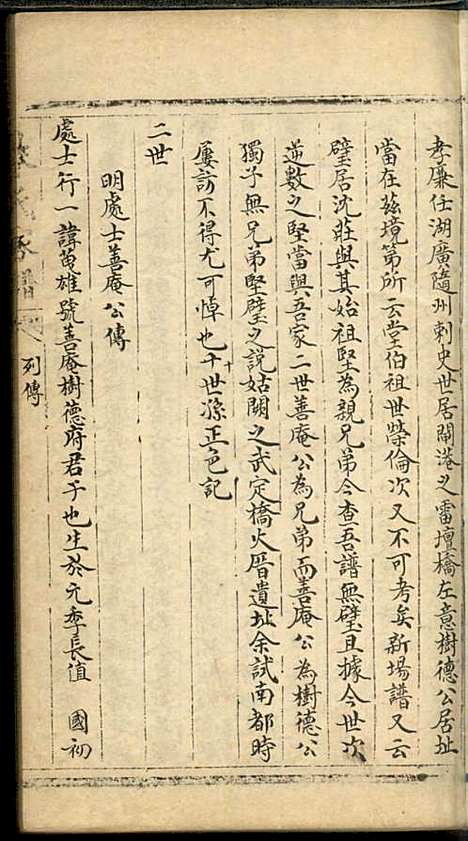 孝廉任湖廣隨州刺史世居閘港之雷壇橋左意樹德公居址
當在茲境第所云堂伯祖世榮倫次又不可考矣新場譜又云
璧居沈莊與其始祖堅為親兄弟今查吾譜無璧且據今世次
逆數之堅當與吾家二世善庵公為兄弟而善庵公為樹德公
獨子無兄弟堅璧之說姑闕之武定橋火厝遺址余試南都時
屢訪不得尤可悼也十世孫正色記
二世
明處士善庵公傳
處士行一諱 雄號善庵樹德府君子也生於元季長值 國初
列傳